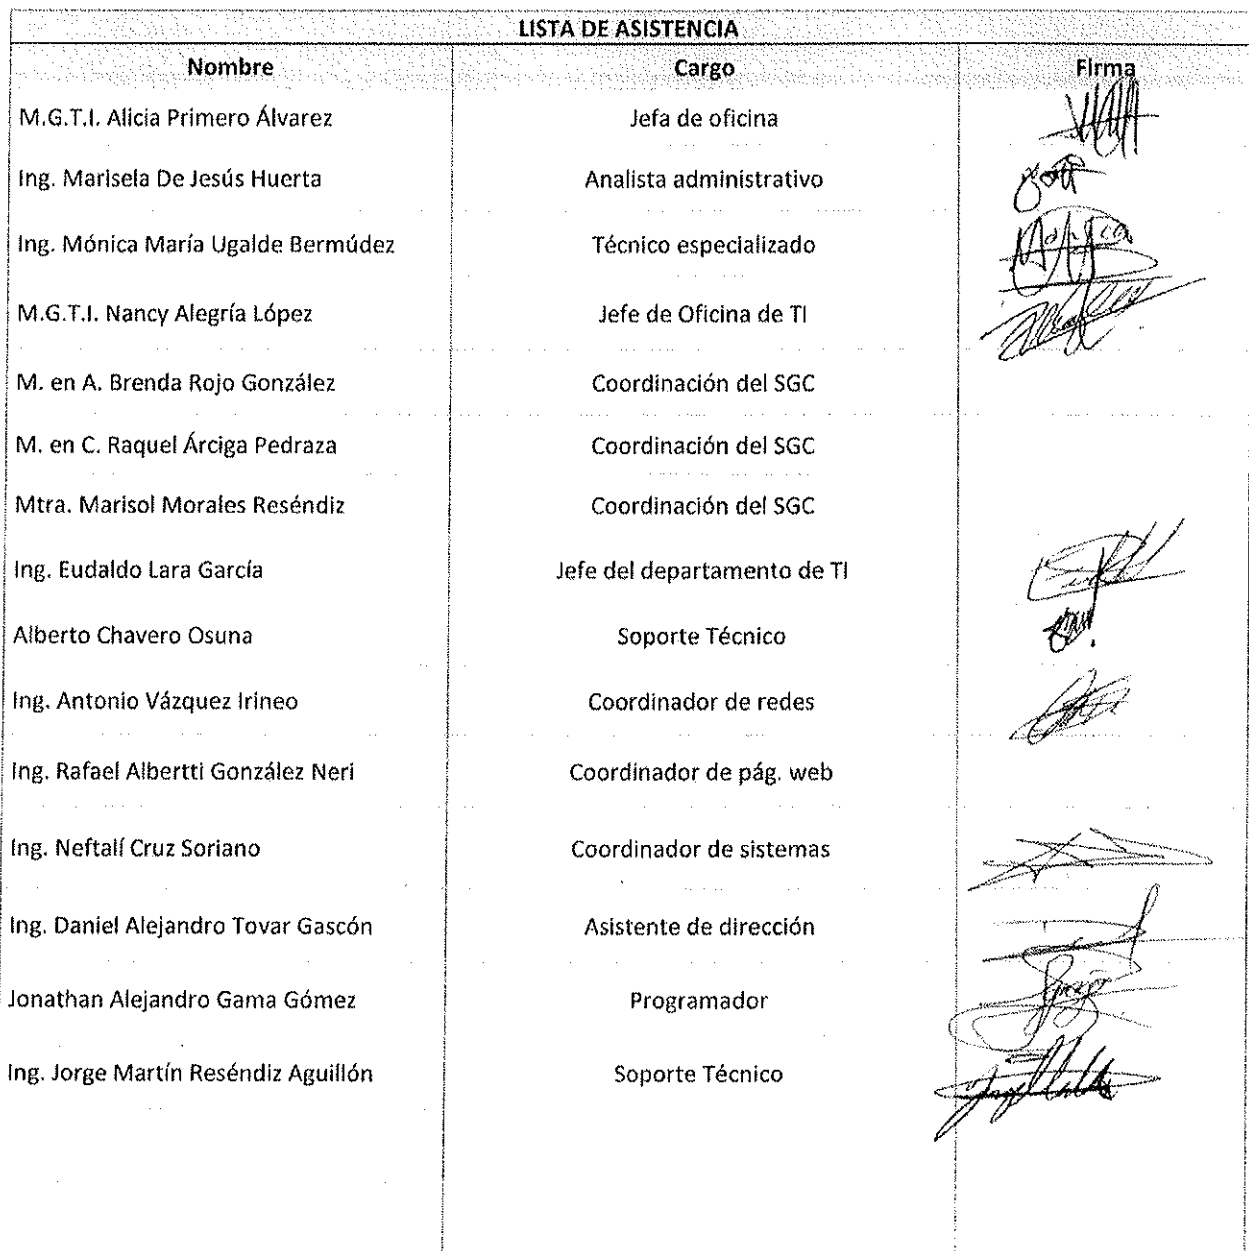 LISTA DE ASISTENCIA
Nombre Cargo Firma
M.G.T.I. Alicia Primero Álvarez Jefa de oficina
Ing. Marisela De Jesús Huerta Analista administrativo
Ing. Mónica María Ugalde Bermúdez Técnico especializado Mónica
M.G.T.I. Nancy Alegría López Jefe de Oficina de TI
M. en A. Brenda Rojo González Coordinación del SGC
M. en C. Raquel Árciga Pedraza Coordinación del SGC
Mtra. Marisol Morales Reséndiz Coordinación del SGC
Ing. Eudaldo Lara García Jefe del departamento de TI
Alberto Chavero Osuna Soporte Técnico
Ing. Antonio Vázquez Irineo Coordinador de redes
Ing. Rafael Albertti González Neri Coordinador de pág. web
Ing. Neftalí Cruz Soriano Coordinador de sistemas
Ing. Daniel Alejandro Tovar Gascón Asistente de dirección
Jonathan Alejandro Gama Gómez Programador
Ing. Jorge Martín Reséndiz Aguillón Soporte Técnico